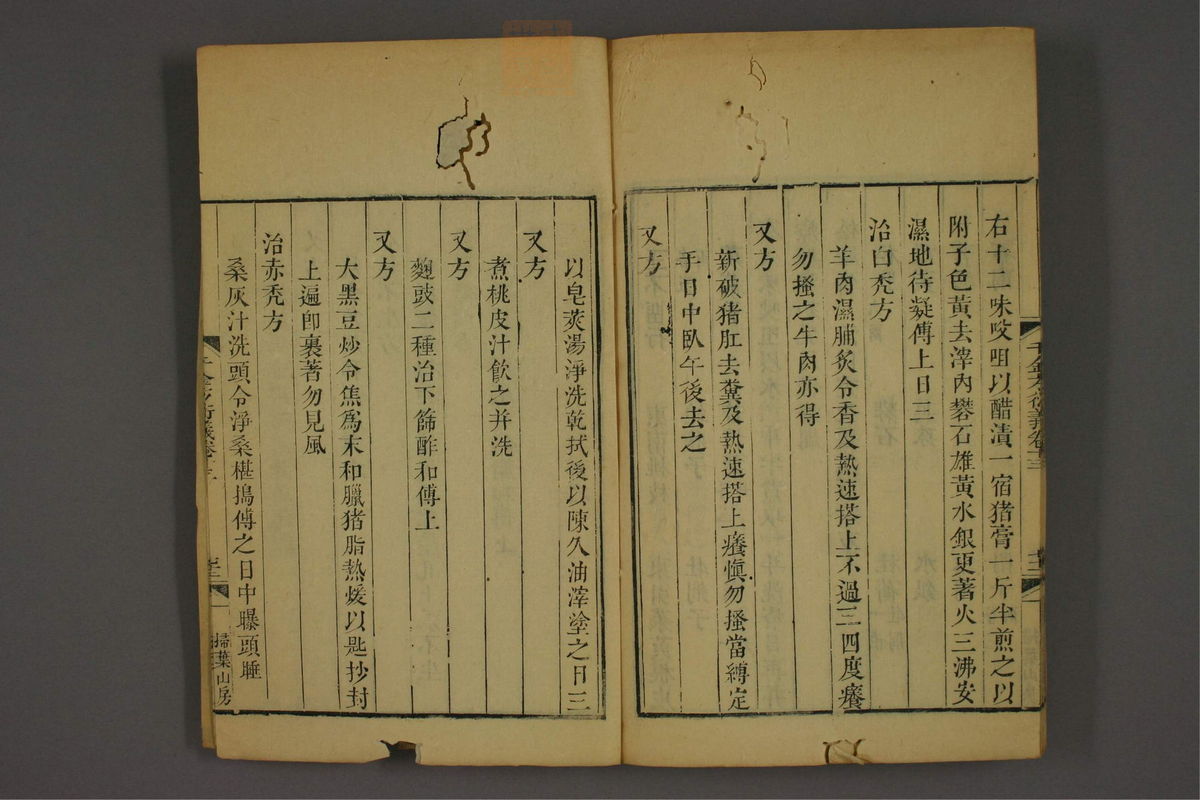 右十二味㕮咀以醋漬一宿猪膏一斤半煎之以
附子色黃去滓內礬石雄黃水銀更著火三沸安
濕地待凝傅上日三
治白禿方
羊肉濕脯炙令香及熱速搭上不過三四度癢
勿搔之牛肉亦得
又方
新破猪肚去糞及熱速搭上癢慎勿搔當縛定
手日中臥午後去之
又方
以皂莢湯淨洗乾拭後以陳久油滓塗之日三
又方
煮桃皮汁飮之幷洗
又方
麴豉二種治下篩酢和傅上
又方
大黑豆炒令焦爲末和臘猪脂熱煖以匙抄封
上遍卽裹著勿見風
治赤禿方
桑灰汁洗頭令淨桑椹搗傅之日中曝頭睡
千金方衍義卷十三
掃葉山房